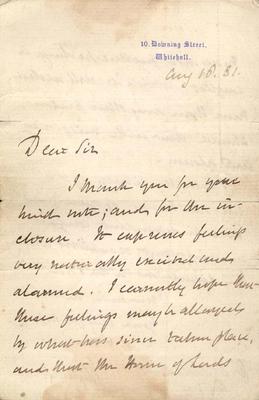 10, Downing Street,
Whitehall.
Aug 18. 81.
Dear Sir
I thank you for your
kind note; and for the in-
closure. It expresses feelings
very naturally excited and
alarmed. I earnestly hope that
these feelings may be allayed
by what has since taken place,
and that the House of Lords